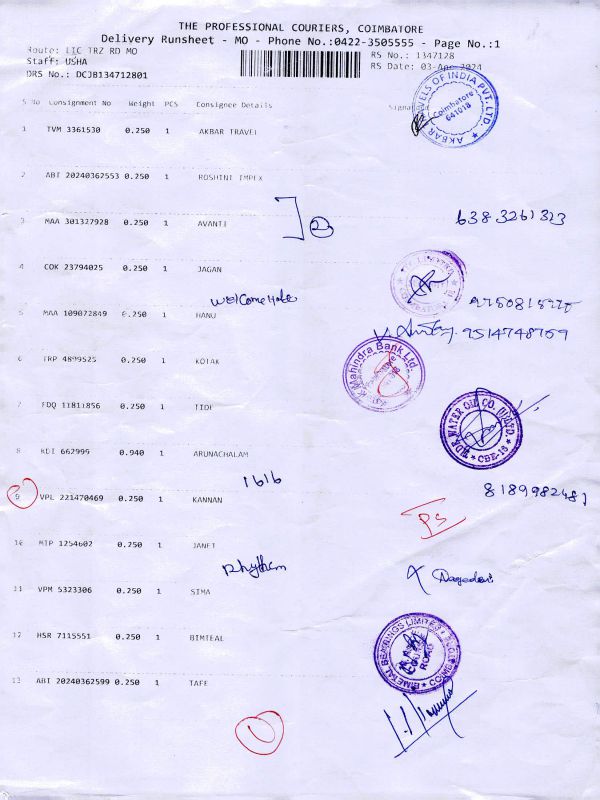 THE PROFESSIONAL COURIERS, COIMBATORE
Delivery Runsheet - MO - Phone No.:0422-3505555 - Page No.:1
Route: LIC TRZ RD MO
RS No.: 1347128
Staff: USHA
RS Date: 03-Apr-2024
DRS No.: DCJB134712801
S No Consignment No Weight PCS Consignee Details Signature
AKBAR TRAVELS OF INDIA PVT. LTD. Coimbatore 641018
1 TVM 3361530 0.250 1 AKBAR TRAVEL
2 ABT 20240362553 0.250 1 ROSHINI IMPEX
3 MAA 301327928 0.250 1 AVANTI
6383261323
4 COK 23794025 0.250 1 JAGAN
Welcome Hotel
5 MAA 109072849 0.250 1 HANU
9514748759
6 TRP 4899525 0.250 1 KOTAK
Mahindra Bank Ltd.
7 EDQ 11811856 0.250 1 TIDE
WATER OIL CO. CBE-18
8 KDI 662999 0.940 1 ARUNACHALAM
1616
8189982481
9 VPL 221470469 0.250 1 KANNAN
PS
10 MTP 1254602 0.250 1 JANET
Rhythm
11 VPM 5323306 0.250 1 SIMA
BIMETAL BEARINGS LIMITED
12 HSR 7115551 0.250 1 BIMTEAL
13 ABT 20240362599 0.250 1 TAFE